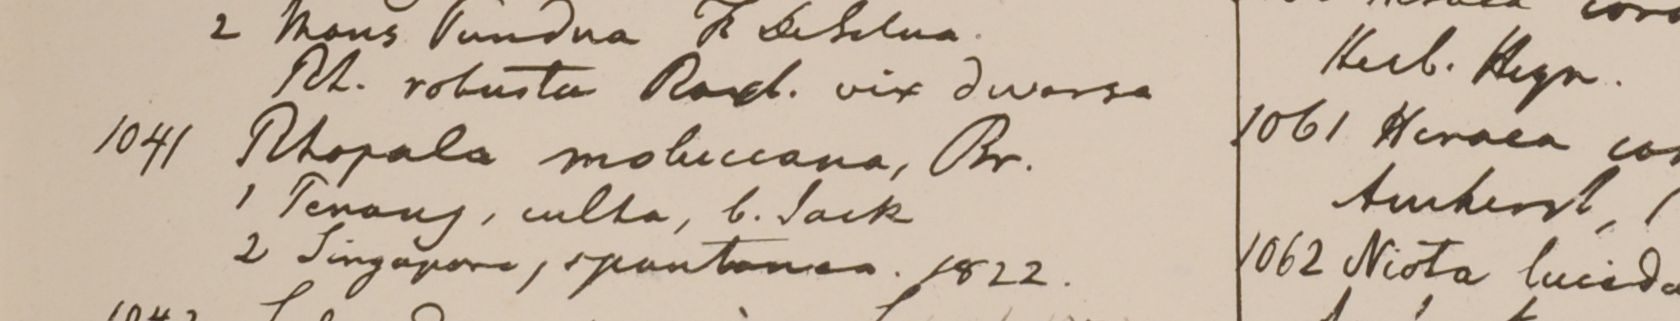 2 Mons Pundua Fr DeSilva.
Rh. robusta Roxb. vix diversa
1041 Rhopala moluccana, Br.
1 Penang, culta, G. Jack
2 Singapore, spontanea. 1822.
Herb. Heyn.
1061 Heraea
Amherst,
1062 Niota lucida